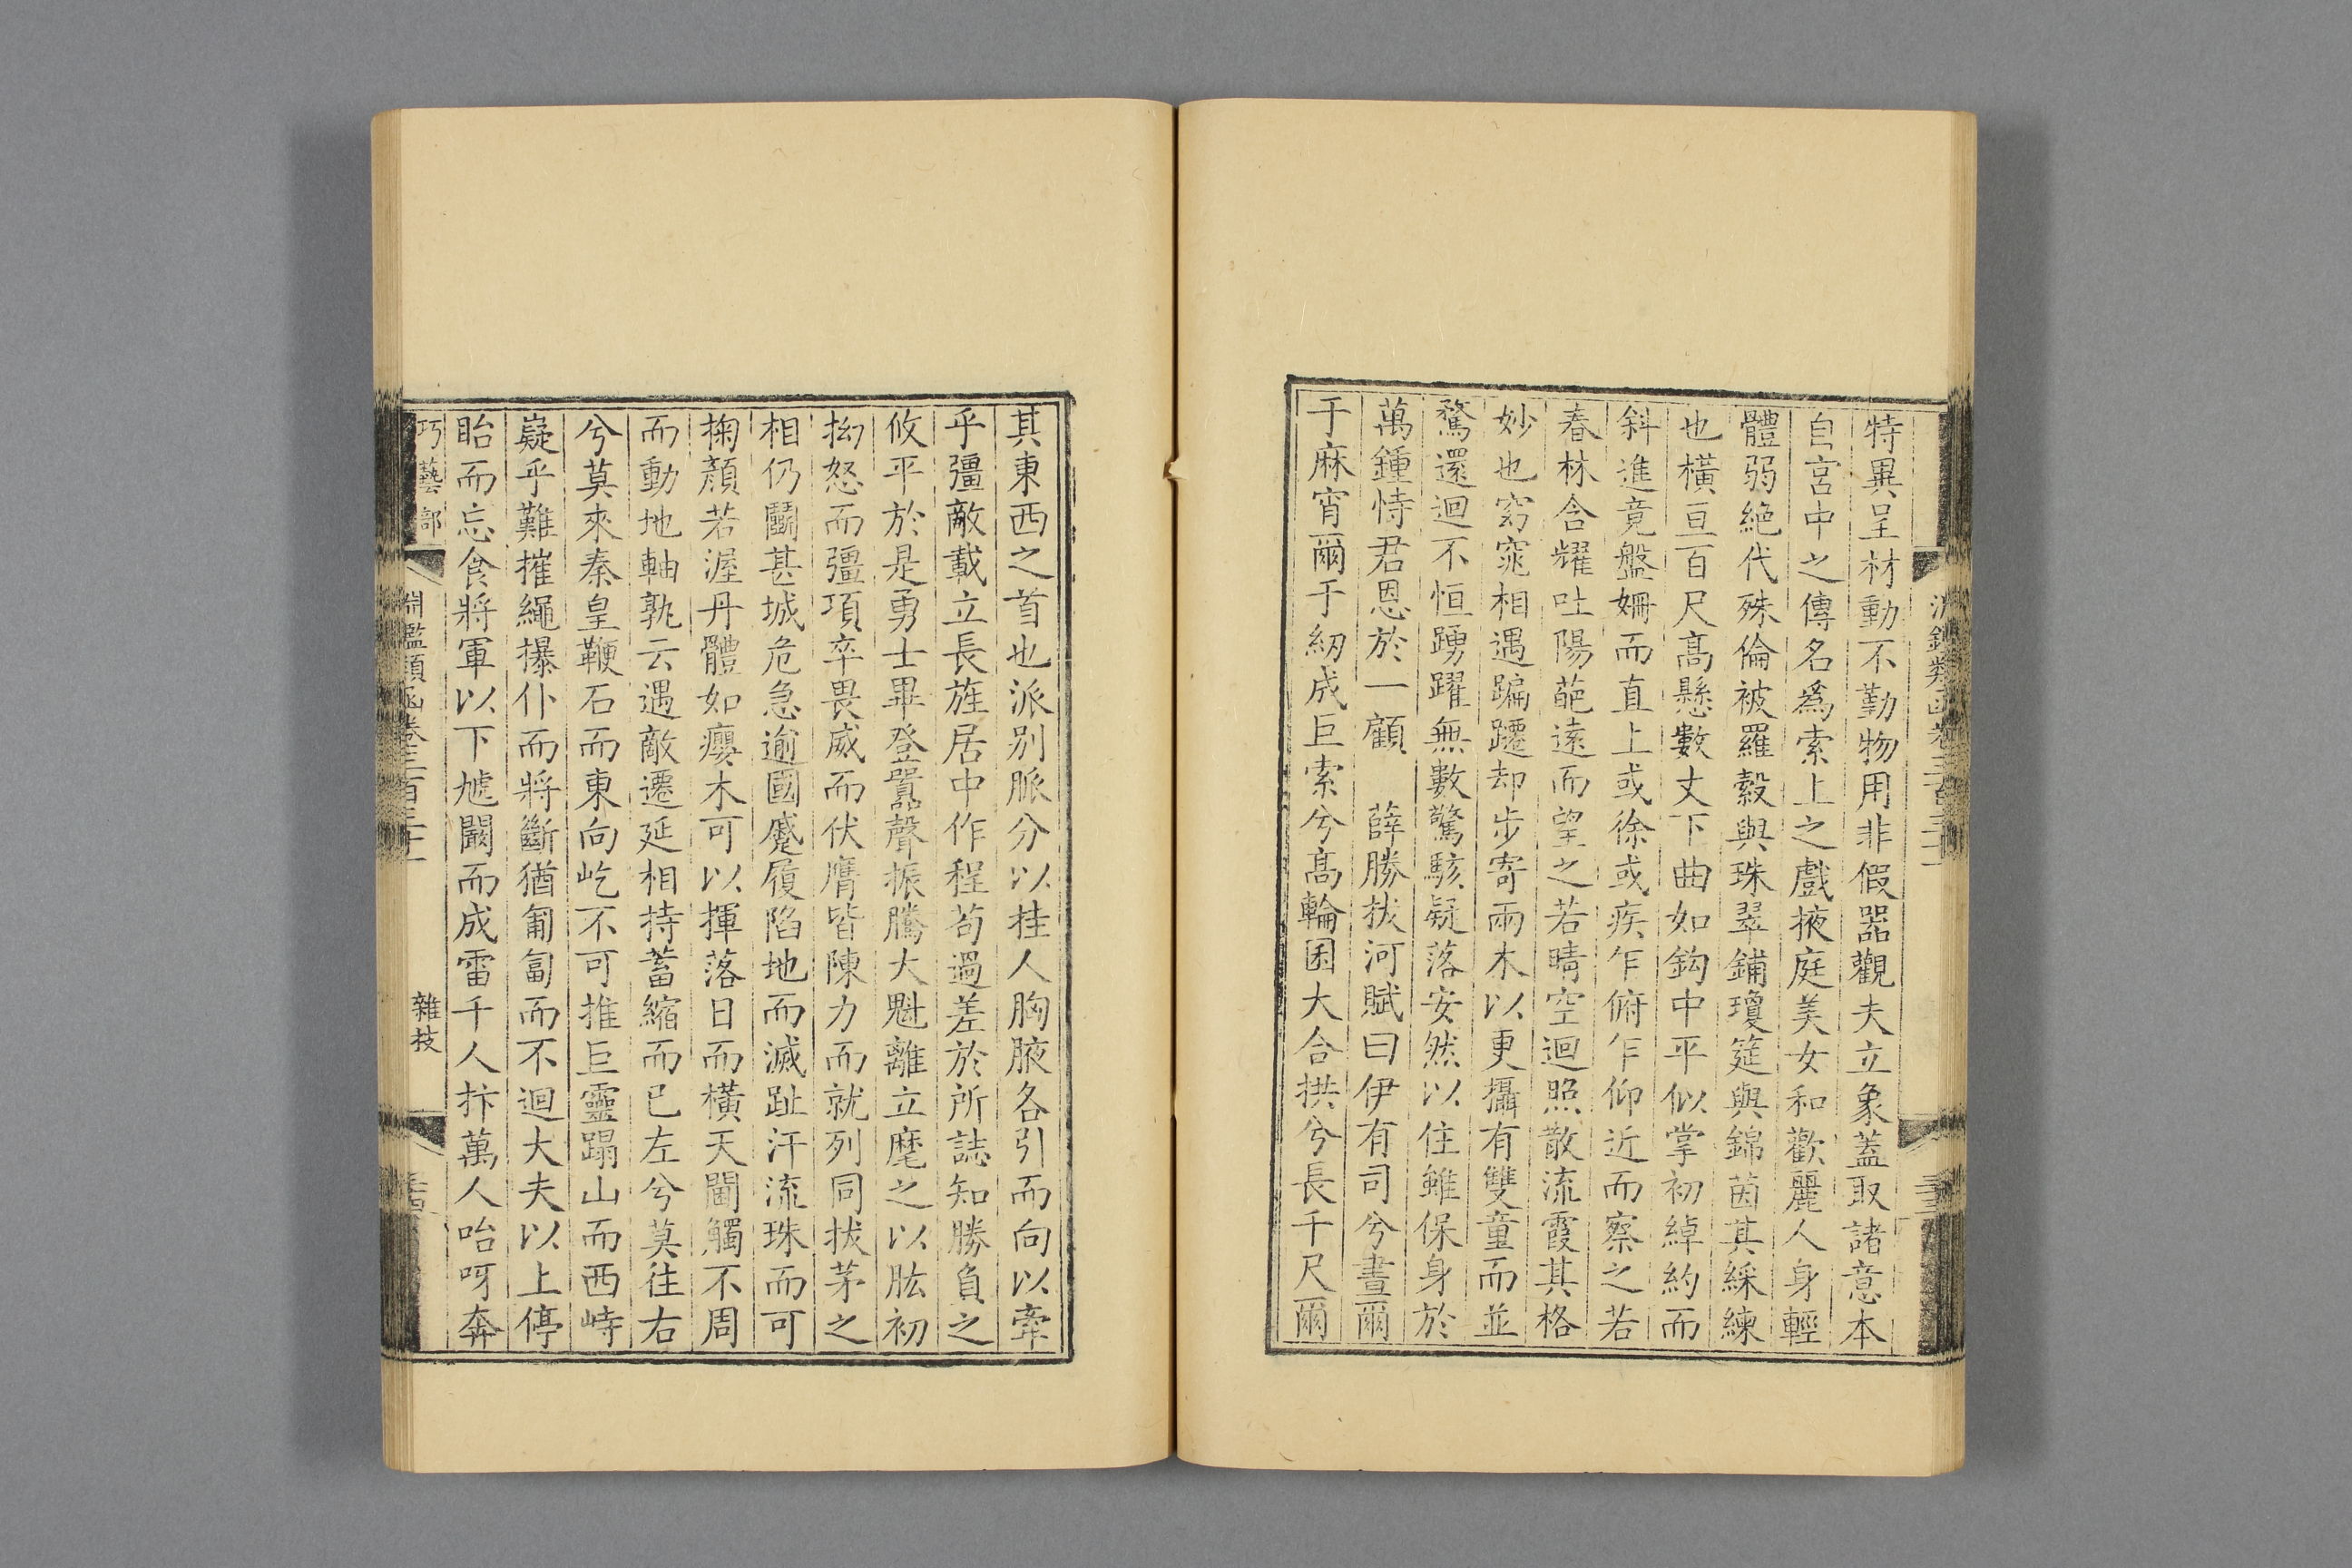 特異呈材動不勤物用非假器觀夫立象蓋取諸意本
自宮中之傳名爲索上之戲掖庭美女和歡麗人身輕
體弱絶代殊倫被羅縠與珠翠鋪瓊筵與錦茵其綵練
也橫亘百尺高懸數丈下曲如鈎中平似掌初綽約而
斜進竟盤姍而直上或徐或疾乍俯乍仰近而察之若
春林含耀吐陽葩遠而望之若晴空迴照散流霞其格
妙也窈窕相遇蹁躚却步寄兩木以更攝有雙童而並
鶩還迴不恒踴躍無數驚駭疑落安然以住雖保身於
萬鍾恃君恩於一顧　薛勝拔河賦曰伊有司兮晝爾
于麻宵爾于紉成巨索兮高輪囷大合拱兮長千尺爾
其東西之首也派別脈分以挂人胸腋各引而向以牽
乎彊敵載立長旌居中作程苟過差於所誌知勝負之
攸平於是勇士畢登嚣聲振騰大魁離立麾之以肱初
拗怒而彊項卒畏威而伏膺皆陳力而就列同拔茅之
相仍鬭甚城危急逾國蹙履陷地而滅趾汗流珠而可
掬顏若渥丹體如癭木可以揮落日而橫天闗觸不周
而動地軸孰云遇敵遷延相持蓄縮而已左兮莫往右
兮莫來秦皇鞭石而東向屹不可推巨靈蹋山而西峙
嶷乎難摧繩㩧仆而將斷猶匍匐而不迴大夫以上停
眙而忘食將軍以下虓闞而成雷千人抃萬人咍呀奔
巧藝部
淵鑑類函卷三百三十一
雜技